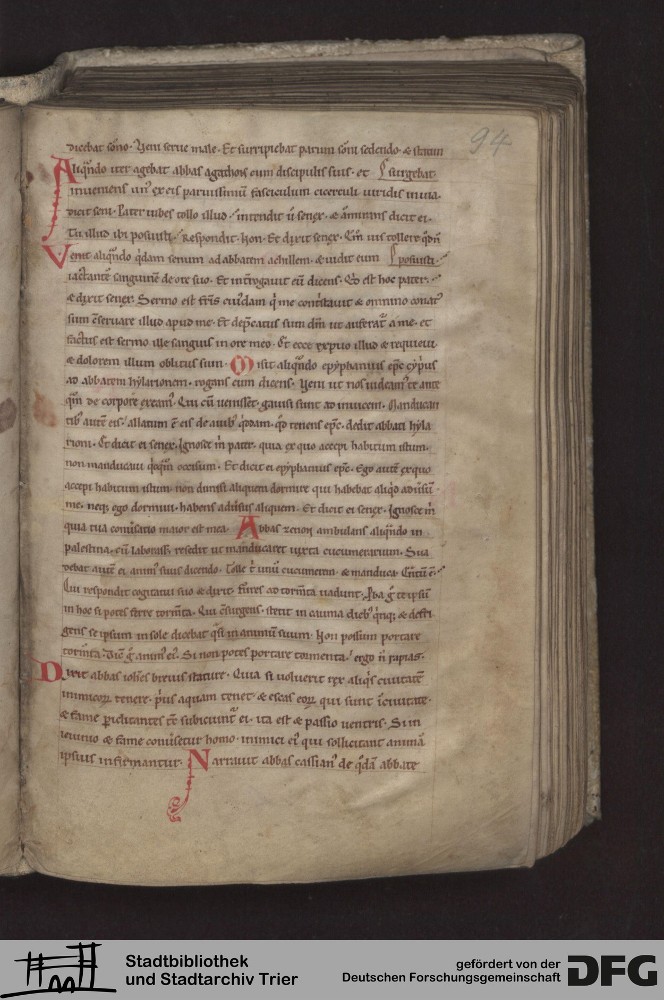 94
dicebat sōno. Veni serue male. Et surripiebat parum sōni sedendo. & statim
Aliqn̄do iter agebat abbas agathon cum discipulis suis. et surgebat.
inueniens un' ex eis paruissimū fasciculum cicerculi uiridis in uia.
dicit seni. Pater iubes tollo illud. intendit ū senex. & ammirans dicit ei.
Tu illud ibi posuisti. Respondit. Non. Et dixit senex. Qm̄ uis tollere qd̄ n̄
Venit aliqn̄do q̇dam senum ad abbatem achillem. & uidit eum posuisti.
iactantē sanguinē de ore suo. Et int̄rogauit eū dicens. Qd̄ est hoc pater.
& dixit senex. Sermo est fr̄is cui'dam q̇ me contstauit & omnino conat'
sum c̄seruare illud apud me. Et dep̄catus sum dm̄ ut auferat' a me. et
factus est sermo ille sanguis in ore meo. Et ecce expuo illud & requieui.
& dolorem illum oblitus sum. Misit aliqn̄do epyphanius ep̄c cyp̄us
ad abbatem hylarionem. rogans eum dicens. Veni ut nos uideam' te ante
qm̄ de corpore exeam'. Qui cū uenisset. gauisi sunt ad inuicem. Manducan
tib' autē eis. allatum ē eis de auib' q̇dam. qd̄ tenens ep̄c. dedit abbati hyla
rioni. Et dicit ei senex. Ignosce m̄ pater. quia ex quo accepi habitum istum.
non manducaui q̇cq̄m occisum. Et dicit ei epyphanius ep̄c. Ego autē ex quo
accepi habitum istum. non dimisi aliquem dormire qui habebat aliqd̄ aduersū
me. neq; ego dormiui. habens aduersus aliquem. Et dicit ei senex. Ignosce m̄
quia tua conuersatio maior est mea. Abbas zenon ambulans aliqn̄do in
palestina. cū laborass& resedit ut manducaret iuxta cucumerarium. Sua
debat autē ei anim' suus dicendo. Tolle t' unum cucumerem. & manduca.
Qui respondit cogitatui suo & dixit. Fures ad tormta uadunt. Pba g̊ te ipsū
in hoc si potes ferre tormta. Qui c̄surgens. stetit in cauma dieb' q̇nq; & defri
gens se ipsum in sole dicebat q̇si in animū suum. Non possum portare
tormta. Dic̄ g̊ anim' ei'. Si non potes portare tormenta. ergo n̄ rapias.
Dixit abbas ioh̄es breuis stature. Quia si uoluerit rex aliq̇s ciuitatē
inimicor̄ tenere. p̄us aquam tenet & escas eor̄ qui sunt ī ciuitate.
& fame p̄iclitantes tc̄ subiciunt' ei. ita est & passio uentris. Si in
ieiunio & fame conuersetur homo. inimici ei' qui sollicitant animā
ipsius infirmantur. Narrauit abbas cassian' de q̇dā abbate
Stadtbibliothek
und Stadtarchiv Trier
gefördert von der
Deutschen Forschungsgemeinschaft
DFG